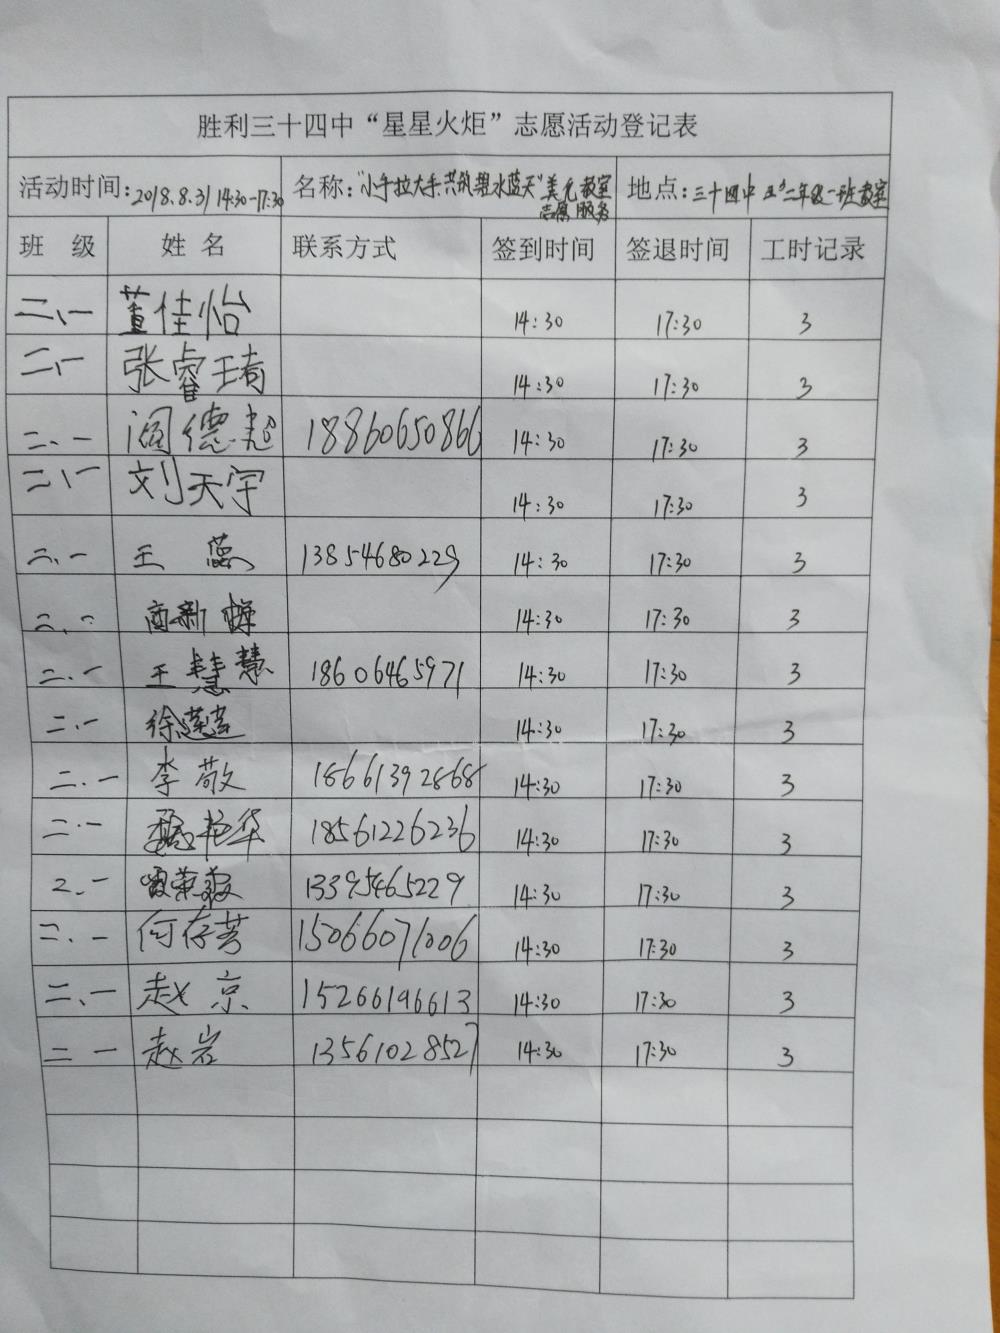 胜利三十四中“星星火炬”志愿活动登记表
活动时间:2018.8.31 14:30-17:30 名称:“小手拉大手共筑碧水蓝天”美化教室志愿服务 地点:三十四中 二年级一班教室
班 级 姓 名 联系方式 签到时间 签退时间 工时记录
二、一 董佳怡 14:30 17:30 3
二、一 张睿琦 14:30 17:30 3
二、一 阎德 18860650866 14:30 17:30 3
二、一 刘天宇 14:30 17:30 3
二、一 王 蕊 13854680229 14:30 17:30 3
二、一 商新 14:30 17:30 3
二、一 王 慧 18606465971 14:30 17:30 3
二、一 徐莲 14:30 17:30 3
二、一 李敬 18661392868 14:30 17:30 3
二、一 艳华 18561226236 14:30 17:30 3
2、一 荣 13395465229 14:30 17:30 3
二、一 何存芳 15066071006 14:30 17:30 3
二、一 赵京 15266196613 14:30 17:30 3
二 一 赵岩 13561028527 14:30 17:30 3